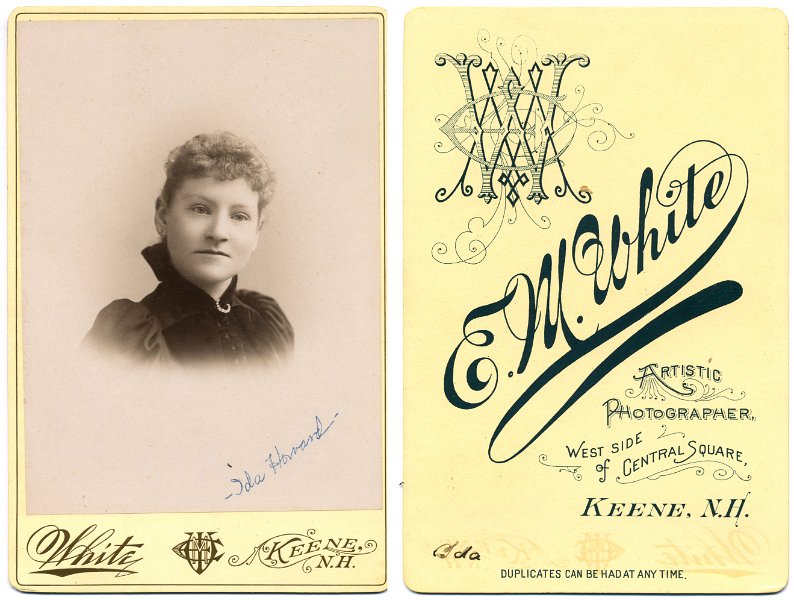 -Ida Howard-
White
EMW
KEENE,
N.H.
EMW
E.M. White
ARTISTIC
PHOTOGRAPHER,
WEST SIDE
of CENTRAL SQUARE,
KEENE, N.H.
Ida
DUPLICATES CAN BE HAD AT ANY TIME.